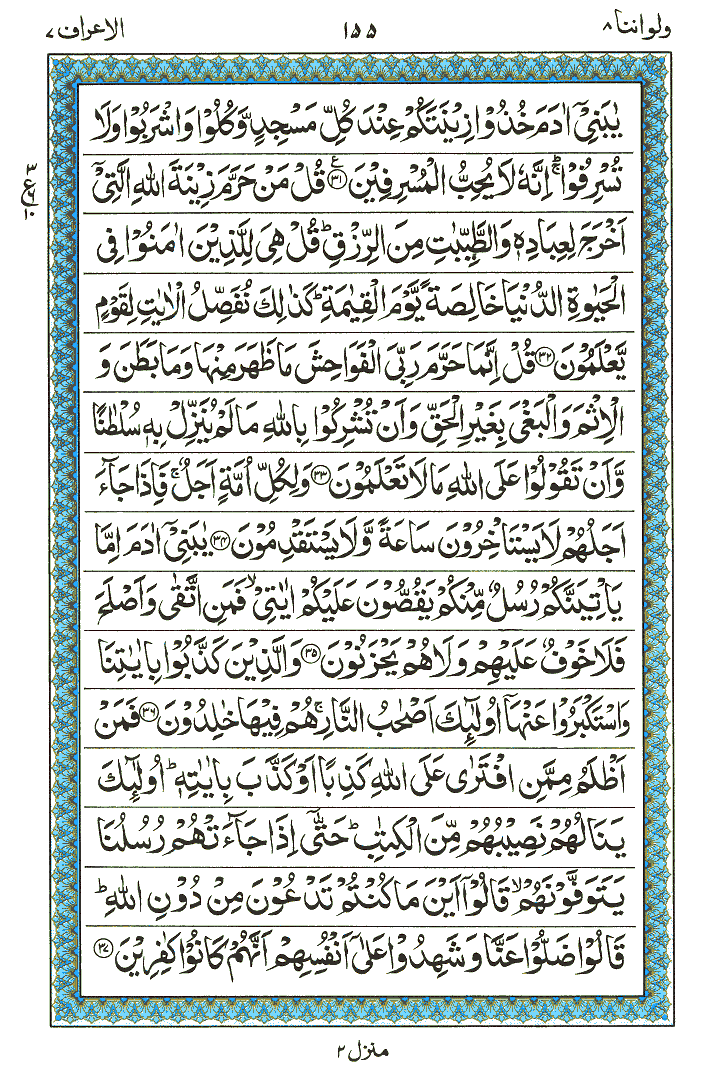 ولواننا ٨
١٥٥
الاعراف ٧
يٰبَنِىْٓ اٰدَمَ خُذُوْا زِيْنَتَكُمْ عِنْدَ كُلِّ مَسْجِدٍ وَّكُلُوْا وَاشْرَبُوْا وَلَا
تُسْرِفُوْا ۚ اِنَّهٗ لَا يُحِبُّ الْمُسْرِفِيْنَ ﴿٣١﴾ ع قُلْ مَنْ حَرَّمَ زِيْنَةَ اللّٰهِ الَّتِىْٓ
٣
ع
٦
١٠
اَخْرَجَ لِعِبَادِهٖ وَالطَّيِّبٰتِ مِنَ الرِّزْقِ ؕ قُلْ هِىَ لِلَّذِيْنَ اٰمَنُوْا فِى
الْحَيٰوةِ الدُّنْيَا خَالِصَةً يَّوْمَ الْقِيٰمَةِ ؕ كَذٰلِكَ نُفَصِّلُ الْاٰيٰتِ لِقَوْمٍ
يَّعْلَمُوْنَ ﴿٣٢﴾ قُلْ اِنَّمَا حَرَّمَ رَبِّىَ الْفَوَاحِشَ مَا ظَهَرَ مِنْهَا وَمَا بَطَنَ وَ
الْاِثْمَ وَالْبَغْىَ بِغَيْرِ الْحَقِّ وَاَنْ تُشْرِكُوْا بِاللّٰهِ مَا لَمْ يُنَزِّلْ بِهٖ سُلْطٰنًا
وَّاَنْ تَقُوْلُوْا عَلَى اللّٰهِ مَا لَا تَعْلَمُوْنَ ﴿٣٣﴾ وَلِكُلِّ اُمَّةٍ اَجَلٌ ۚ فَاِذَا جَآءَ
اَجَلُهُمْ لَا يَسْتَاْخِرُوْنَ سَاعَةً وَّلَا يَسْتَقْدِمُوْنَ ﴿٣٤﴾ يٰبَنِىْٓ اٰدَمَ اِمَّا
يَاْتِيَنَّكُمْ رُسُلٌ مِّنْكُمْ يَقُصُّوْنَ عَلَيْكُمْ اٰيٰتِىْ ۙ فَمَنِ اتَّقٰى وَاَصْلَحَ
فَلَا خَوْفٌ عَلَيْهِمْ وَلَا هُمْ يَحْزَنُوْنَ ﴿٣٥﴾ وَالَّذِيْنَ كَذَّبُوْا بِاٰيٰتِنَا
وَاسْتَكْبَرُوْا عَنْهَآ اُولٰٓئِكَ اَصْحٰبُ النَّارِ ۚ هُمْ فِيْهَا خٰلِدُوْنَ ﴿٣٦﴾ فَمَنْ
اَظْلَمُ مِمَّنِ افْتَرٰى عَلَى اللّٰهِ كَذِبًا اَوْ كَذَّبَ بِاٰيٰتِهٖ ؕ اُولٰٓئِكَ
يَنَالُهُمْ نَصِيْبُهُمْ مِّنَ الْكِتٰبِ ؕ حَتّٰٓى اِذَا جَآءَتْهُمْ رُسُلُنَا
يَتَوَفَّوْنَهُمْ ۙ قَالُوْٓا اَيْنَ مَا كُنْتُمْ تَدْعُوْنَ مِنْ دُوْنِ اللّٰهِ ؕ
قَالُوْا ضَلُّوْا عَنَّا وَشَهِدُوْا عَلٰٓى اَنْفُسِهِمْ اَنَّهُمْ كَانُوْا كٰفِرِيْنَ ﴿٣٧﴾
منزل ٢